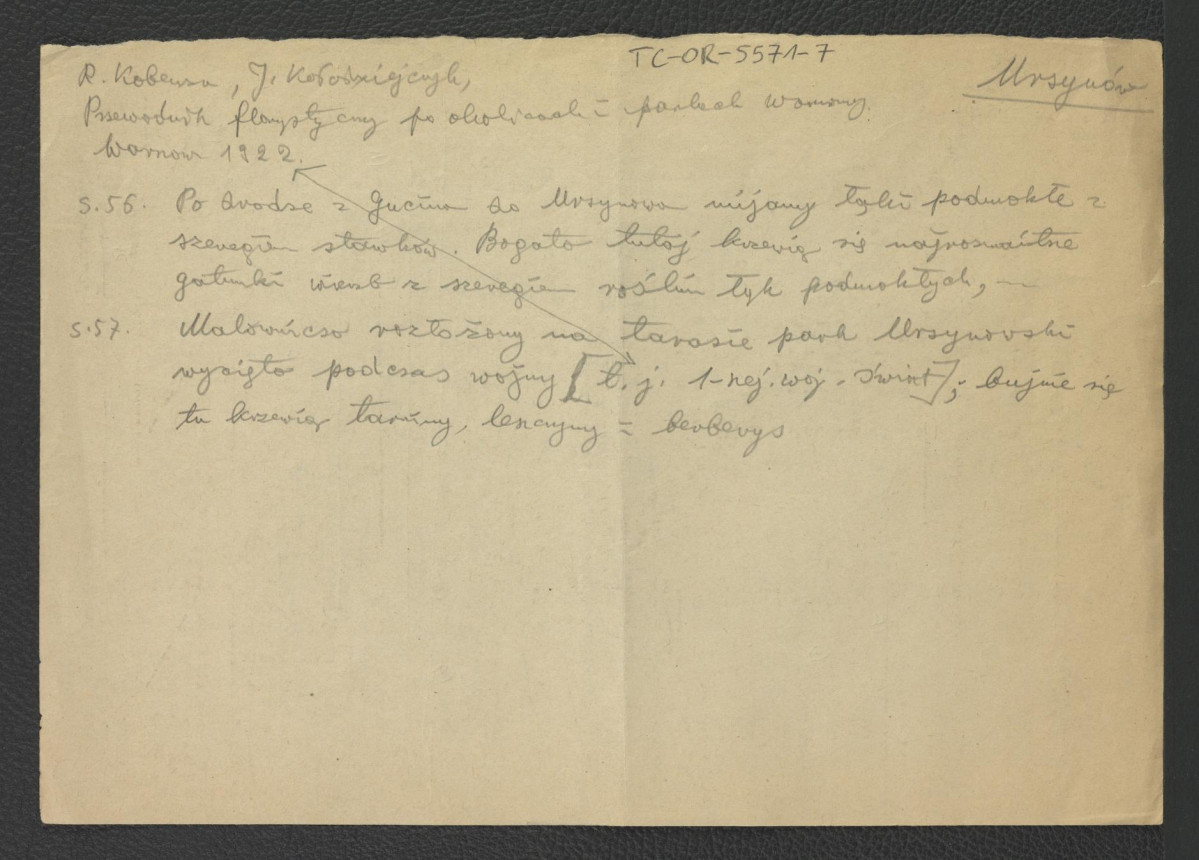 TC-OR-5571-7
Ursynów
R. Kobenza, J. Kołodziejczyk,
Przewodnik florystyczny po okolicach i parkach Warszawy.
Warszawa 1922.
s.56. Po drodze z Gucina do Ursynowa mijamy łąki podmokłe z
szeregiem stawków. Bogato tutaj krzewią się najrozmaitsze
gatunki wierzb z szeregiem roślin łąk podmokłych, —
s.57. Malowniczo rozłożony na tarasie park Ursynowski
wycięto podczas wojny [t.j. 1-szej. woj. świat]; bujnie się
tu krzewią tarniny, leszczyny i berberys